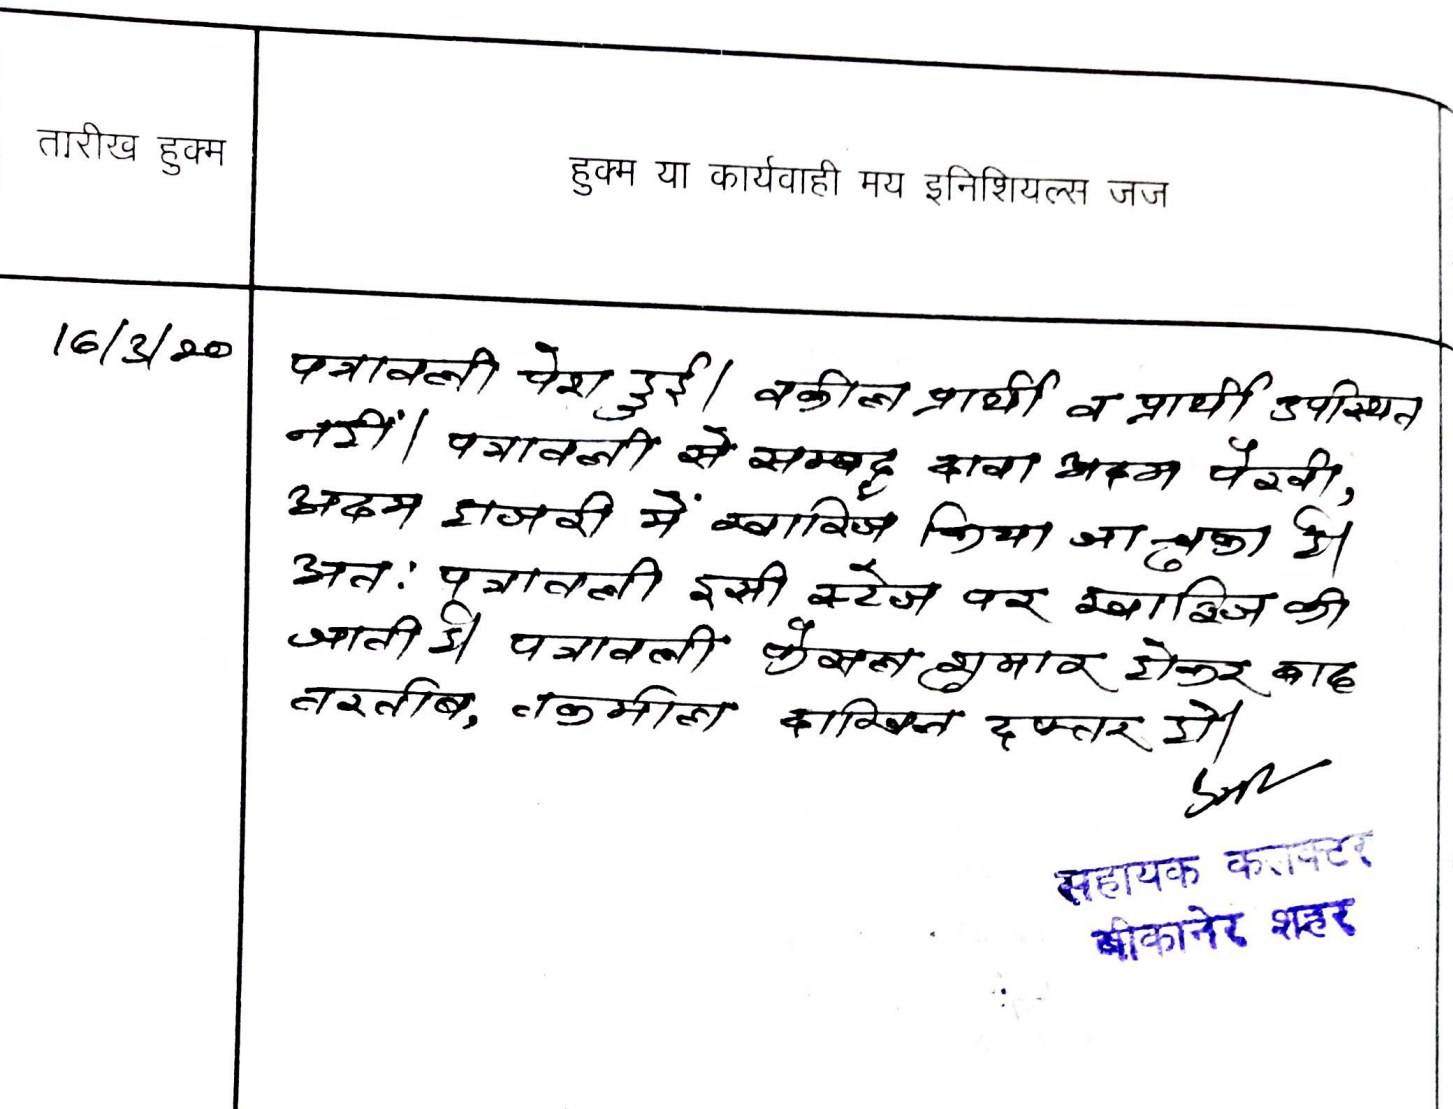 तारीख हुक्म
हुक्म या कार्यवाही मय इनिशियल्स जज
16/3/20
पत्रावली पेश हुई। वकील प्रार्थी व प्रार्थी उपस्थित
नहीं। पत्रावली से सम्बद्ध दावा अदम पैरवी,
अदम हाजरी में खारिज किया जा चुका है।
अत: पत्रावली इसी स्टेज पर खारिज की
जाती है। पत्रावली फैसल शुमार होकर बाद
तरतीब, तकमील दाखिल दफ्तर हो।
सहायक कलक्टर
बीकानेर शहर